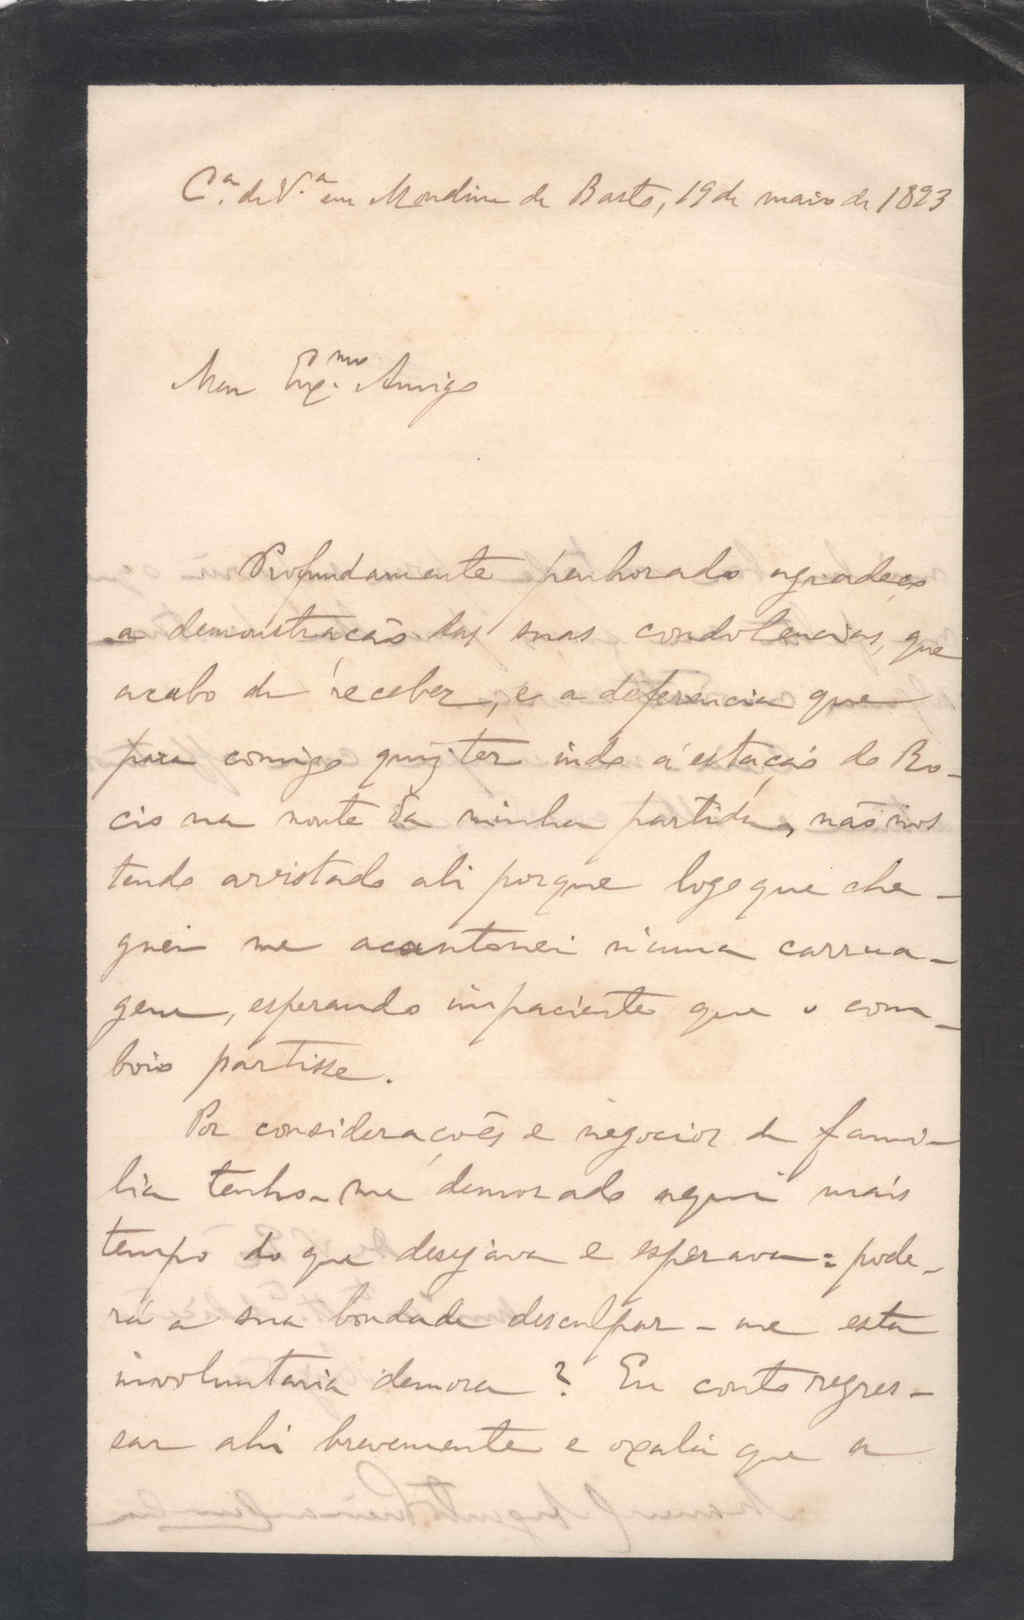 C.ª de V.ª em Mondim de Basto, 19 de maio de 1893
Meu Exp.mo Amigo
Profundamente penhorado agradeço
a demonstração das suas condolencias, que
acabo de receber, e a deferencia que
para comigo quiz ter indo á estação do Ro-
cio na noute da minha partida, não nos
tendo avistado ali porque logo que che-
guei me acantonei n'uma carrua-
gem, esperando impaciente que o com-
boio partisse.
Por considerações e negocios de fami-
lia tenho-me demorado aqui mais
tempo do que desejava e esperava: pode-
rá a sua bondade desculpar-me esta
involuntaria demora? Eu conto regres-
sar ahi brevemente e oxalá que a